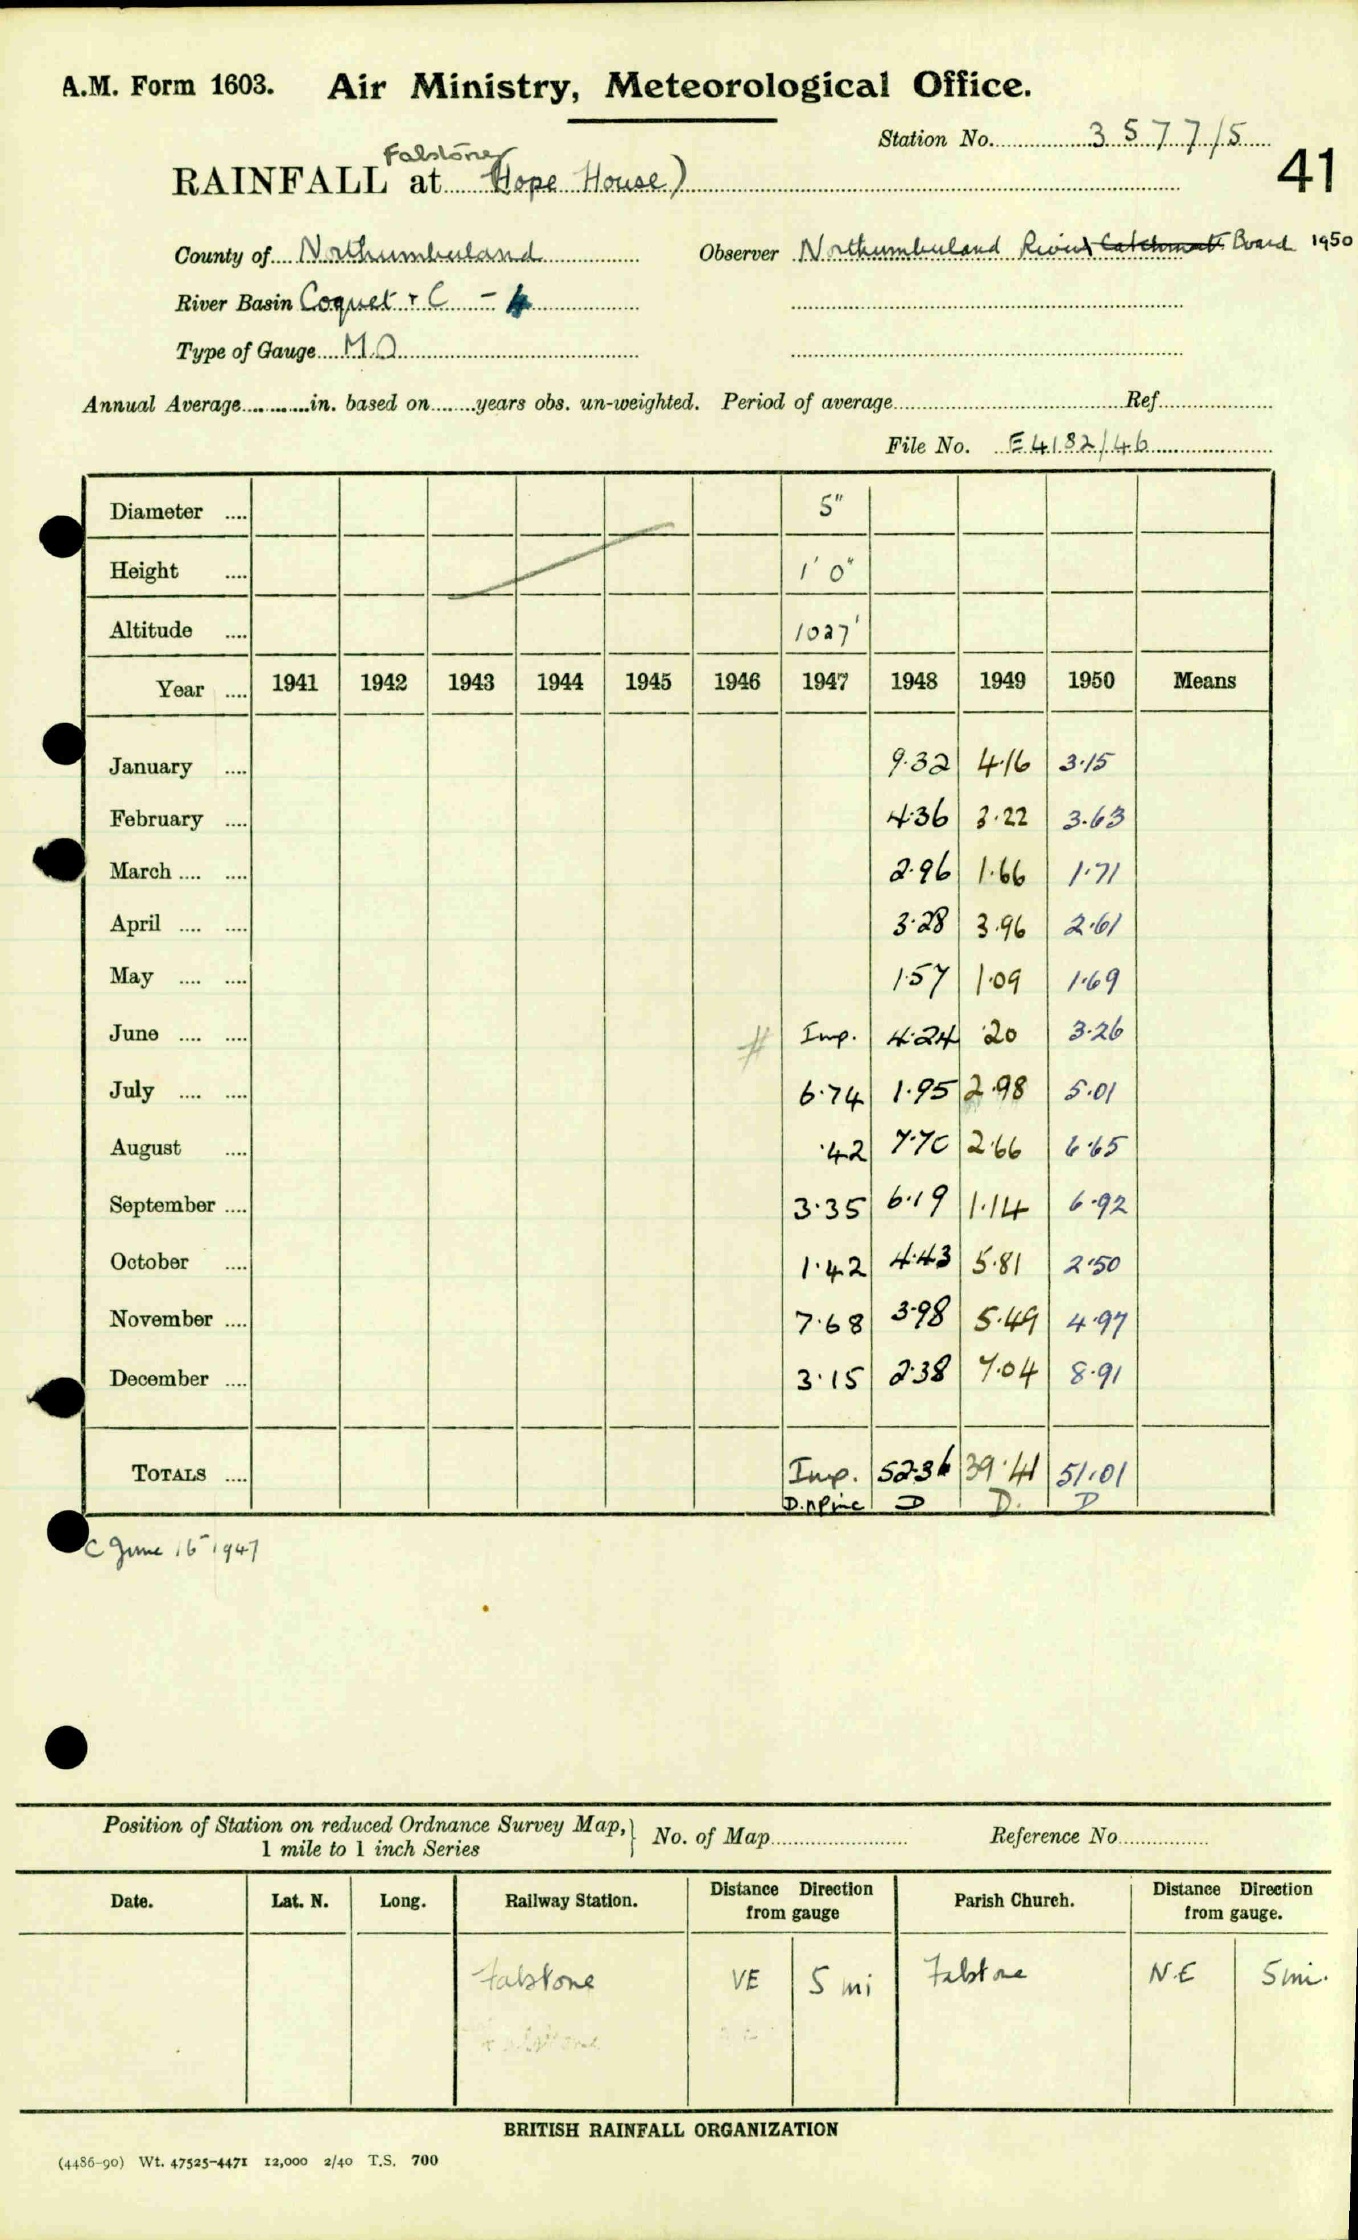 A.M. Form 1603. Air Ministry, Meteorological Office.
Station No. 3577/5
41
Falstone
RAINFALL at (Hope House)
County of Northumberland Observer Northumberland Rivers Catchment Board 1950
River Basin Coquet + C - 4
Type of Gauge M.O
Annual Average............in. based on........years obs. un-weighted. Period of average........ Ref........
File No. E4182/46
Diameter .... 5"
Height .... 1' 0"
Altitude .... 1027'
Year .... 1941 1942 1943 1944 1945 1946 1947 1948 1949 1950 Means
January .... 9.32 4.16 3.15
February .... 4.36 3.22 3.63
March .... .... 2.96 1.66 1.71
April .... .... 3.28 3.96 2.61
May .... .... 1.57 1.09 1.69
June .... .... # Imp. 4.24 .20 3.26
July .... .... 6.74 1.95 2.98 5.01
August .... .42 7.70 2.66 6.65
September .... 3.35 6.19 1.14 6.92
October .... 1.42 4.43 5.81 2.50
November .... 7.68 3.98 5.49 4.97
December .... 3.15 2.38 7.04 8.91
TOTALS .... Imp. 52.36 39.41 51.01
D D. D
C June 16 1947
Position of Station on reduced Ordnance Survey Map,
1 mile to 1 inch Series } No. of Map........ Reference No........
Date. Lat. N. Long. Railway Station. Distance Direction from gauge Parish Church. Distance Direction from gauge.
Falstone VE 5 mi Falstone N.E 5 mi.
Falstone
BRITISH RAINFALL ORGANIZATION
(4486-90) Wt. 47525-4471 12,000 2/40 T.S. 700